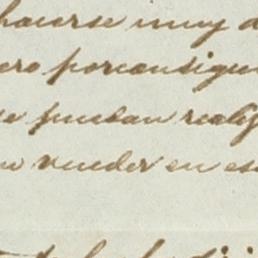 hacerse muy d
ero porconsigui
se puedan realiz
vender en es